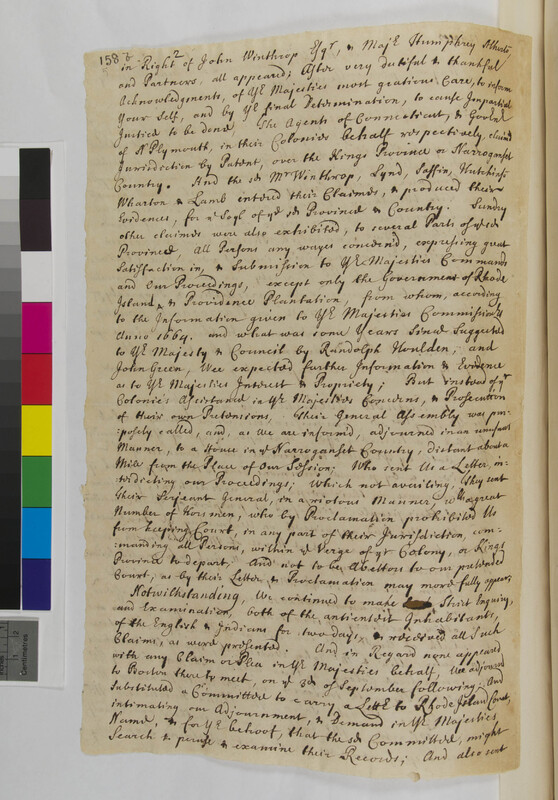 158
in Right of John Winthrop Esqr, & Majr Humphrey Atherto
and Partners, all appeared; After very dutifull & thankful
Acknowledgments, of Yr Majesties most gratious Care, to inform
Your Self, and by Yr final Determination, to cause Impartial
Justice to be done. The Agents of Connecticut, & Govern
of N Plymouth, in their Colonies behalf respectively, claimed
Jurisdiction by Patent, over the Kings Province or Narroganset
Country. And the sd Mr Winthrop, Lynd, Saffin, Hutchinson
Wharton & Lamb entered their Claimes, & produced their
Evidences, for ye Soyl of ye sd Province & Country. Sundry
other claimes were also exhibited, to several Parts of ye sd
Province, All Persons any wayes concernd, expressing great
Satisfaction in, & Submission to Yr Majesties Commands
and Our Proceedings, except only the Government of Rhode
Island & Providence Plantation, from whom, according
to the Information given to Yr Majesties Commission's
Anno 1664. and what was some Years since Suggested
to Yr Majesty & Council by Randolph Houlden, and
John Green, Wee expected further Information & Evidence
as to Yr Majesties Interest & Propriety; But instead of yt
Colonie's Assistance in Yr Majesties Concerns, & Prosecution
of their own Pretensions, Their General Assembly was pur-
posely called, and, as we are inform'd, adjourned in an unusual
Manner, to a House in ye Narroganset Country, distant about a
Mile from the Place of Our Session; Who sent Us a Letter, in-
terdicting our Proceedings; Which not availing, They sent
their Serjeant General, in a riotous Manner, wth great
Number of Horsmen, who by Proclamation prohibited Us
from keeping Court, in any part of their Jurisdiction, com-
manding all Persons, within ye Verge of yr Colony, or Kings
Province to depart, And not to be Abettors to our pretended
Court, as by their Letter & Proclamation may more fully appear;
Notwithstanding, We continued to make Strict Inquiry,
and Examination, both of the antientest Inhabitants,
of the English & Indians for two days, & received all Such
Claims, as were presented. And in Regard none appeared
with any Claim or Plea in Yr Majesties behalf, We adjournd
to Boston there to meet, on ye 3d of September following; And
Substituted a Committee to carry a Lettr to Rhode Island Court,
intimating our Adjournment, & Demand in Yr Majesties
Name, & for Yr behoof, that the sd Committee, might
Search & peruse & examine their Records; And also sent